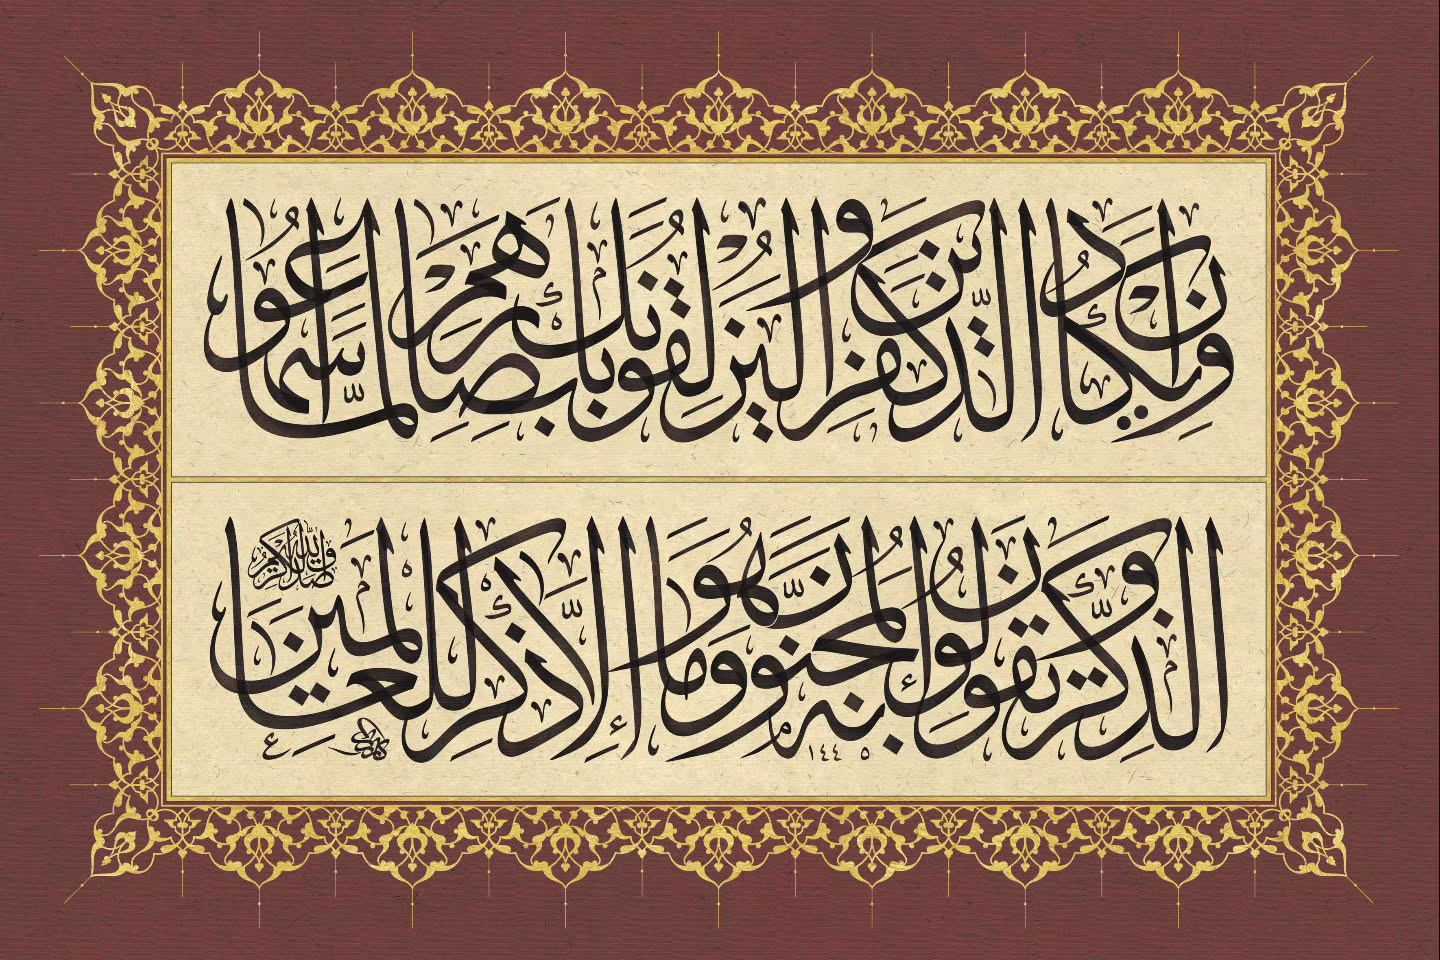 وَإِن يَكَادُ الَّذِينَ كَفَرُوا لَيُزْلِقُونَكَ بِأَبْصَارِهِمْ لَمَّا سَمِعُوا
الذِّكْرَ وَيَقُولُونَ إِنَّهُ لَمَجْنُونٌ وَمَا هُوَ إِلَّا ذِكْرٌ لِّلْعَالَمِينَ
١٤٤٥